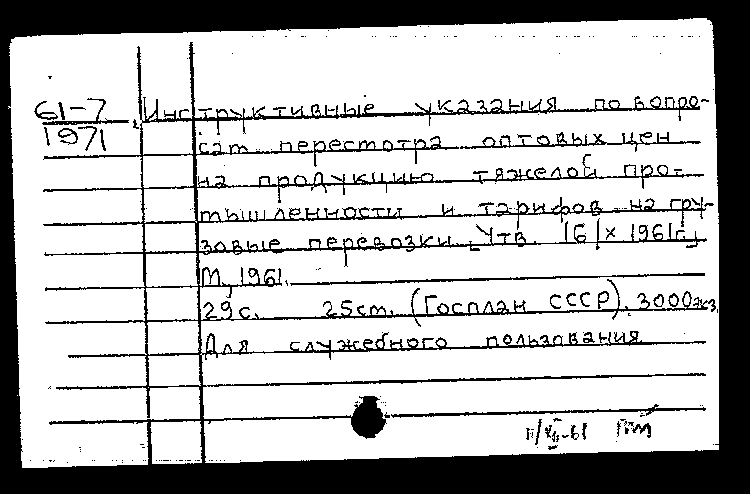 61-7
1971
Инструктивные указания по вопро-
сам пересмотра оптовых цен
на продукцию тяжелой про-
мышленности и тарифов на гру-
зовые перевозки. Утв. 16/IX 1961г.
М., 1961.
29с. 25см. (Госплан СССР). 3000экз.
Для служебного пользования